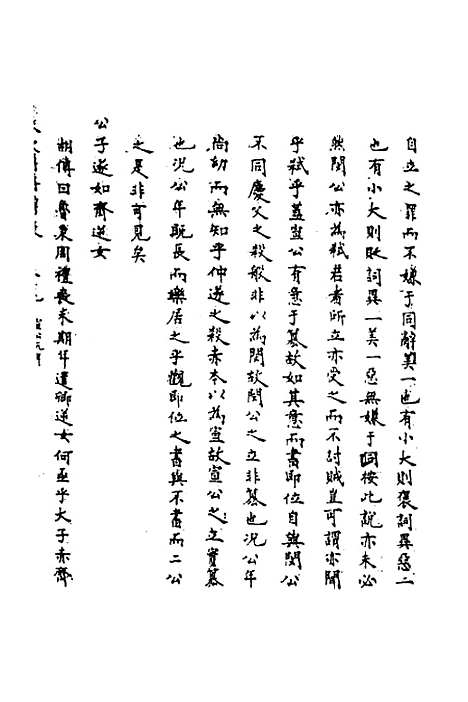 自立之罪而不嫌于同辭美一也有小大則褒詞異惡二
也有小大則貶詞異一美一惡無嫌于同按此說亦未必
然閔公亦為弑君者所立亦受之而不討賊豈可謂亦聞
乎弑乎蓋宣公有意于篡故如其意而書即位自與閔公
不同慶父之殺般非以為閔故閔公之立非篡也況公年
尚幼而無知乎仲遂之殺赤本以為宣故宣公之立實篡
也況公年既長而樂居之乎觀即位之書與不書而二公
之是非可見矣
公子遂如齊逆女
胡傳曰魯秉周禮喪未期年遣卿逆女何亟乎大子赤齊